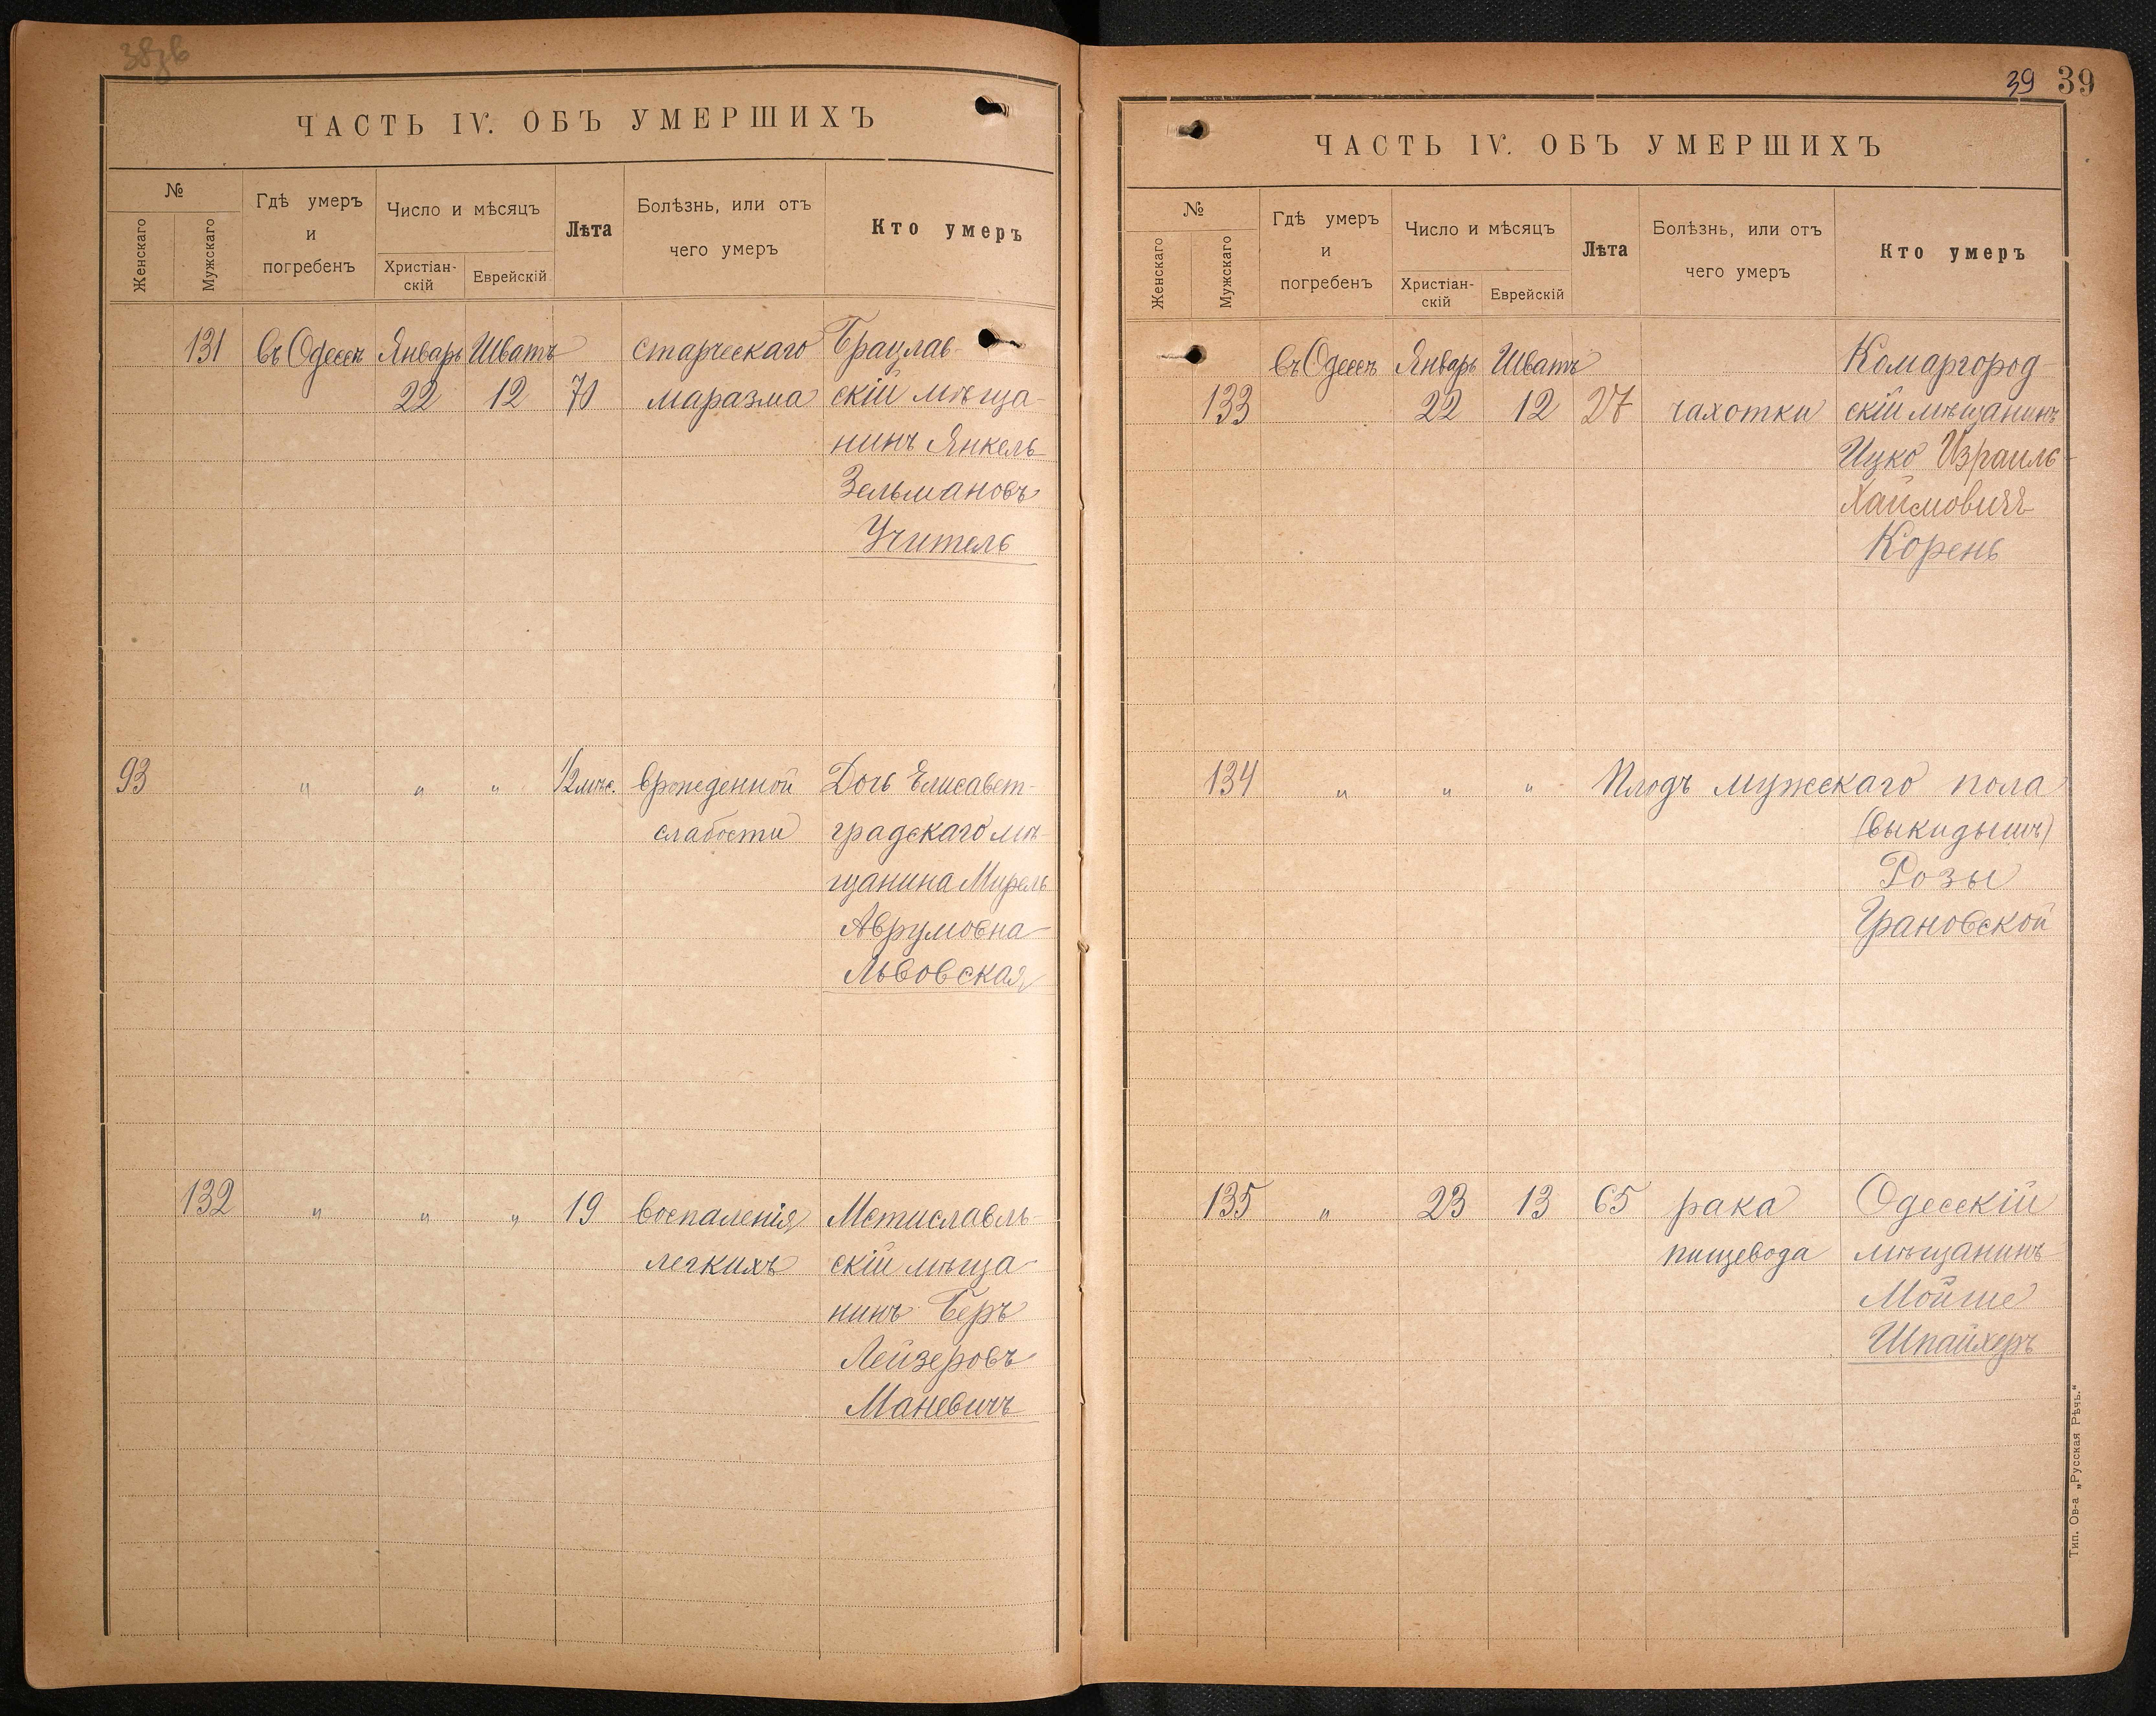 38зв
ЧАСТЬ IV. ОБЪ УМЕРШИХЪ
№
Женскаго
Мужскаго
Гдѣ умеръ
и
погребенъ
Число и мѣсяцъ
Христіан-
скій
Еврейскій
Лѣта
Болѣзнь, или отъ
чего умеръ
Кто умеръ
131 въ Одессѣ Январь Шватъ старческаго Брацлав-
22 12 70 маразма скій мѣща-
нинъ Янкель
Зельмановъ
Учитель
93 " " " 1/2 мѣс. врожденной Дочь Елисавет-
слабости градскаго мѣ-
щанина Мирель
Аврумовна
Львовская
132 " " " 19 воспаленія Мстиславль-
легкихъ скій мѣща-
нинъ Беръ
Лейзеровъ
Маневичъ
39 39
ЧАСТЬ IV. ОБЪ УМЕРШИХЪ
№
Женскаго
Мужскаго
Гдѣ умеръ
и
погребенъ
Число и мѣсяцъ
Христіан-
скій
Еврейскій
Лѣта
Болѣзнь, или отъ
чего умеръ
Кто умеръ
въ Одессѣ Январь Шватъ Комаргород-
133 22 12 27 чахотки скій мѣщанинъ
Ицко Израиль
Хаимовичъ
Корень
134 " " " Плодъ мужскаго пола
(выкидышъ)
Розы
Грановской
135 " 23 13 65 рака Одесскій
пищевода мѣщанинъ
Мойше
Шпайхеръ
Тип. Ов-а „Русская Рѣчь."